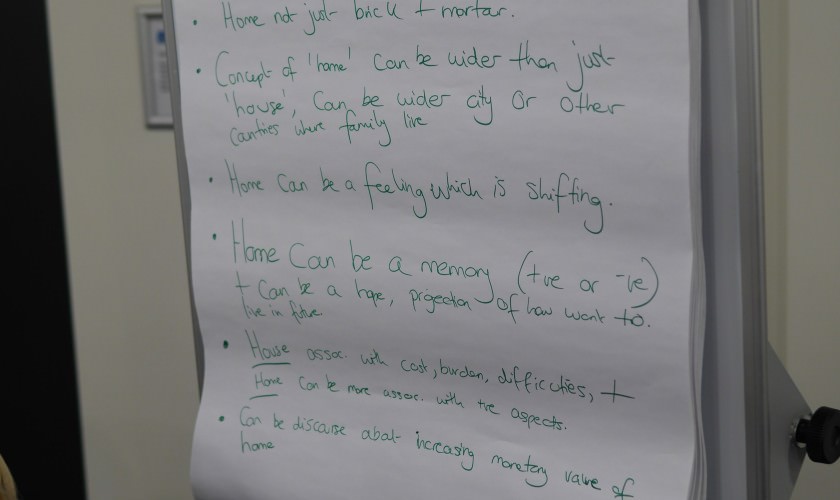 • Home not just brick + mortar.
• Concept of 'home' can be wider than just
'house', can be wider city or other
countries where family live
• Home can be a feeling which is shifting.
• Home can be a memory (+ve or -ve)
+ can be a hope, projection of how want to.
live in future
• House assoc. with cost, burden, difficulties, +
Home can be more assoc. with +ve aspects.
• Can be discourse about increasing monetary value of
home